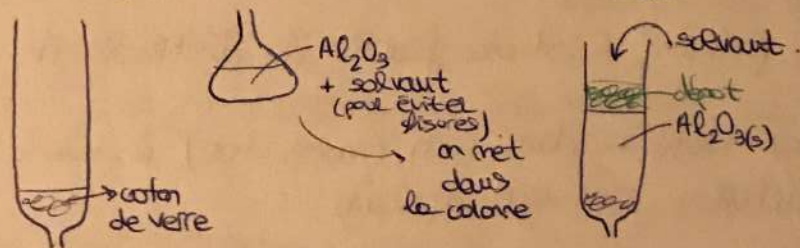 coton
de verre
Al₂O₃
+ solvaut
(pour éviter
fissures)
on met
dans
la colonne
solvant.
dépot
Al₂O₃(s)